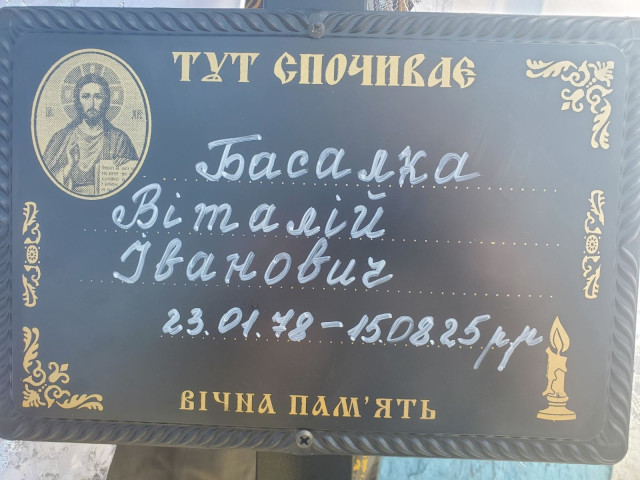 ТУТ СПОЧИВАЄ
Басалка
Віталій
Іванович
23.01.78-15.08.25 рр
ВІЧНА ПАМ'ЯТЬ